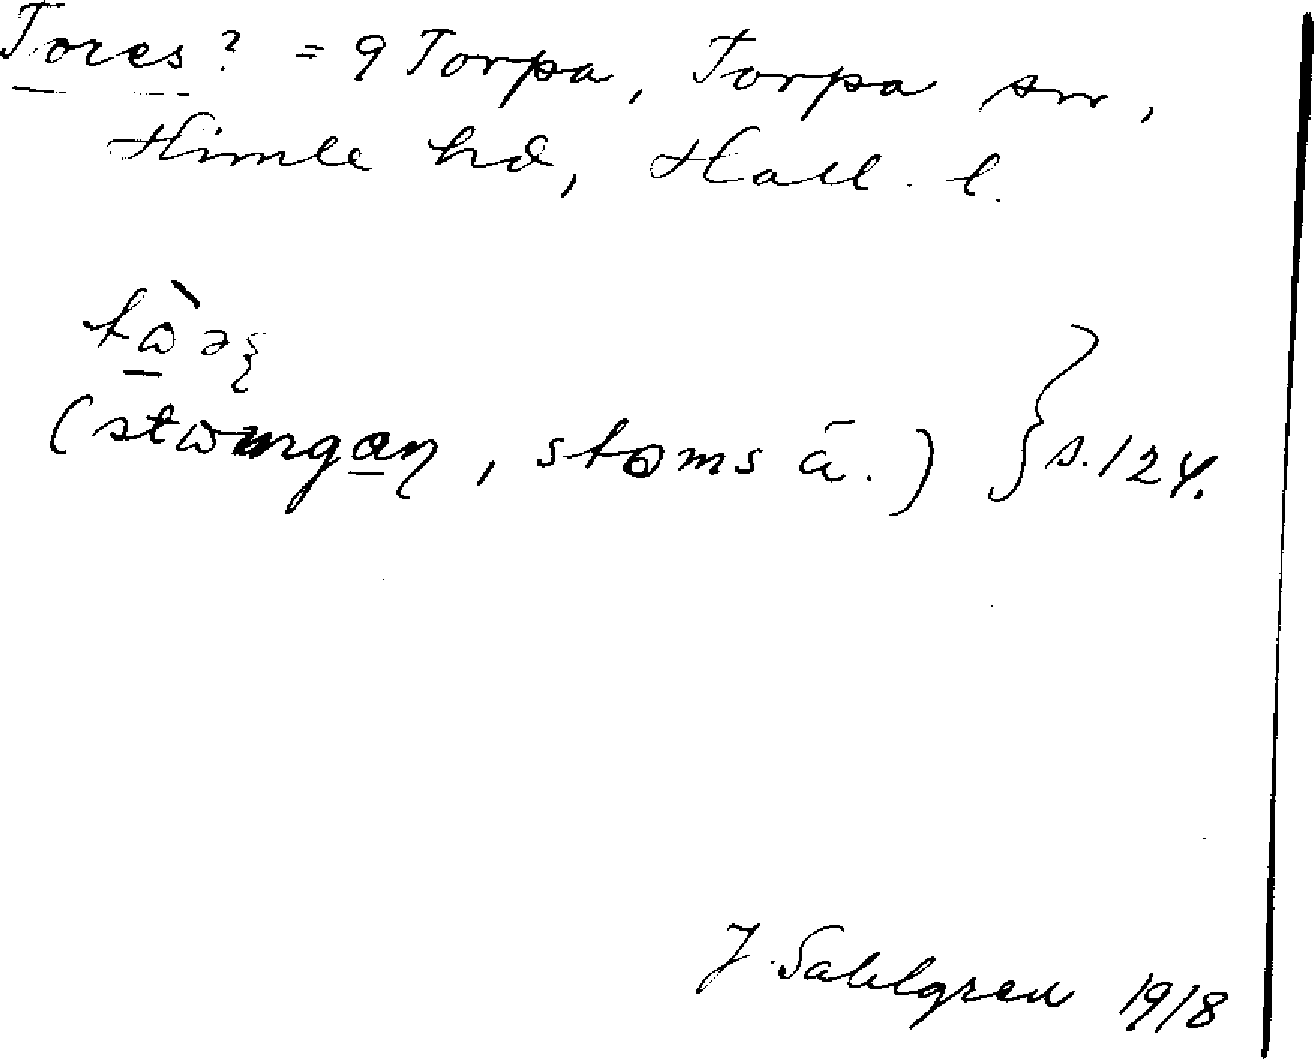 Tores? = 9 Torpa, Torpa sn,
Himle hd, Hall. l.
(stomgan, stoms ā.) } s. 124.
J. Sahlgren 1918